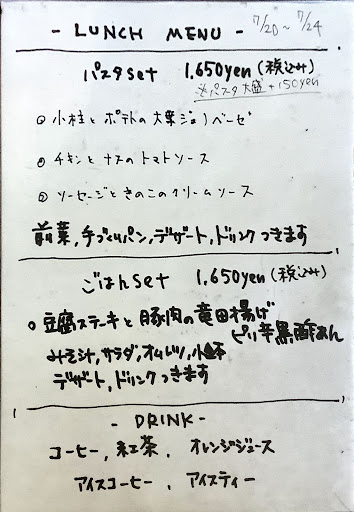 - LUNCH MENU - 7/20〜7/24
パスタset 1,650yen (税込み)
※パスタ大盛 +150yen
◎ 小柱とポテトの大葉ジェノベーゼ
◎ チキンとナスのトマトソース
◎ ソーセージときのこのクリームソース
前菜,手づくりパン,デザート,ドリンクつきます
ごはんset 1,650yen (税込み)
◎ 豆腐ステーキと豚肉の竜田揚げ
ピリ辛黒酢あん
みそ汁,サラダ,オムレツ,小鉢
デザート,ドリンクつきます
- DRINK -
コーヒー,紅茶、オレンジジュース
アイスコーヒー、アイスティー